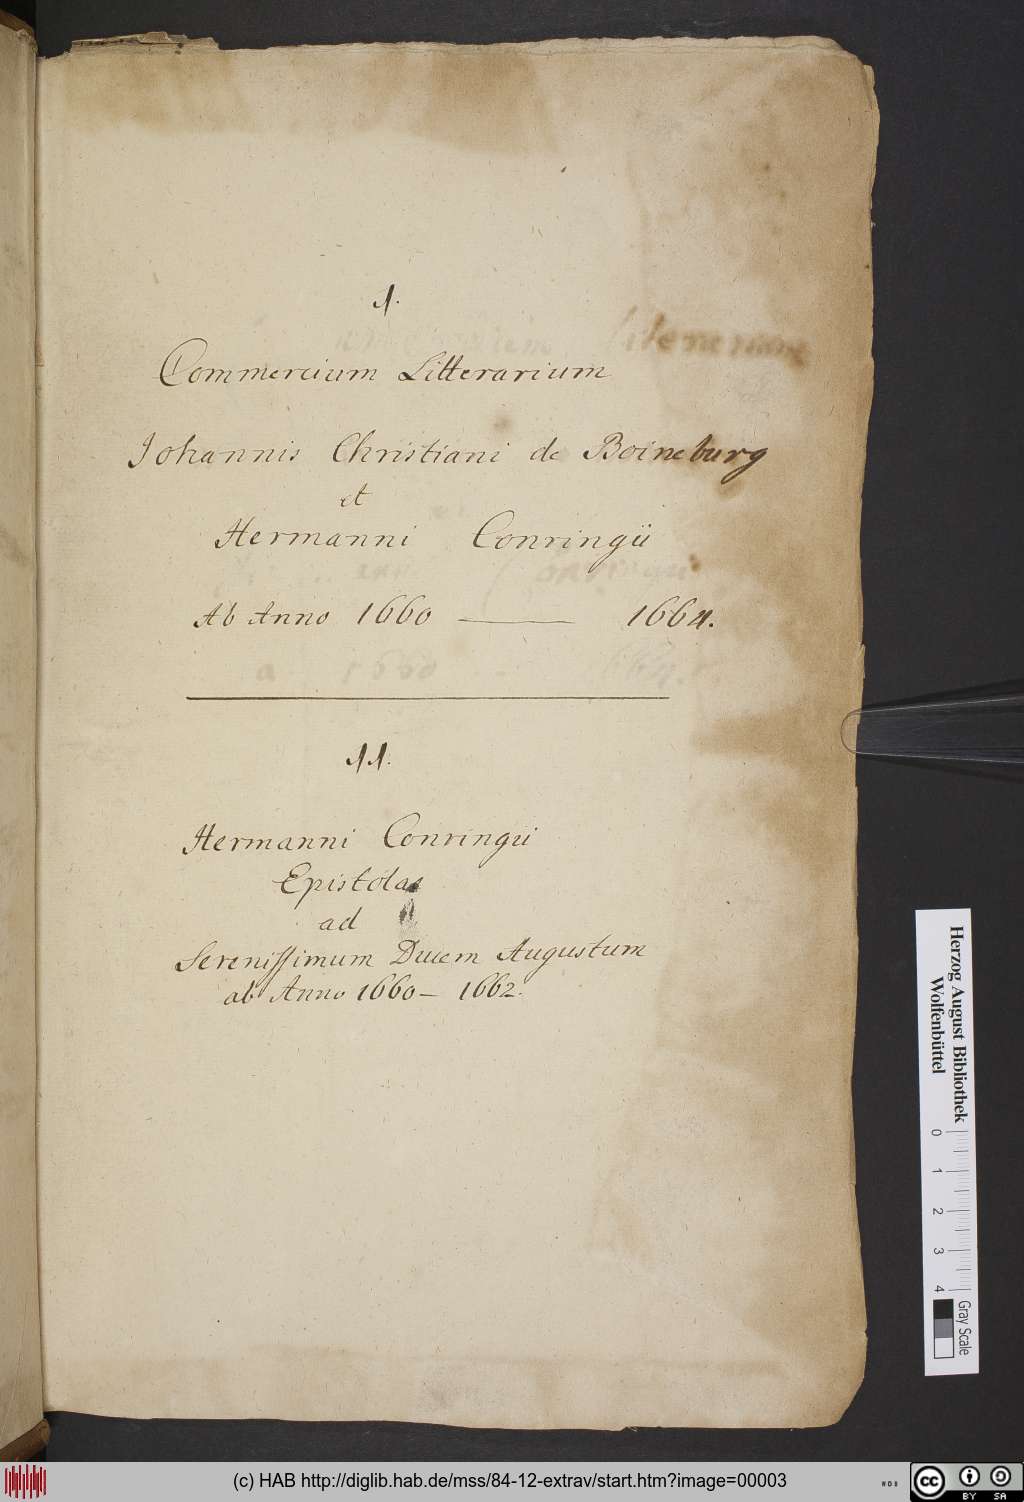 I.
Commercium Litterarium
Johannis Christiani de Boineburg
et
Hermanni Conringii
Ab Anno 1660 — 1664.
II.
Hermanni Conringii
Epistolae
ad
Serenissimum Ducem Augustum
ab Anno 1660 – 1662.
Herzog August Bibliothek
Wolfenbüttel
0 1 2 3 4
Gray Scale
(c) HAB http://diglib.hab.de/mss/84-12-extrav/start.htm?image=00003
cc BY SA